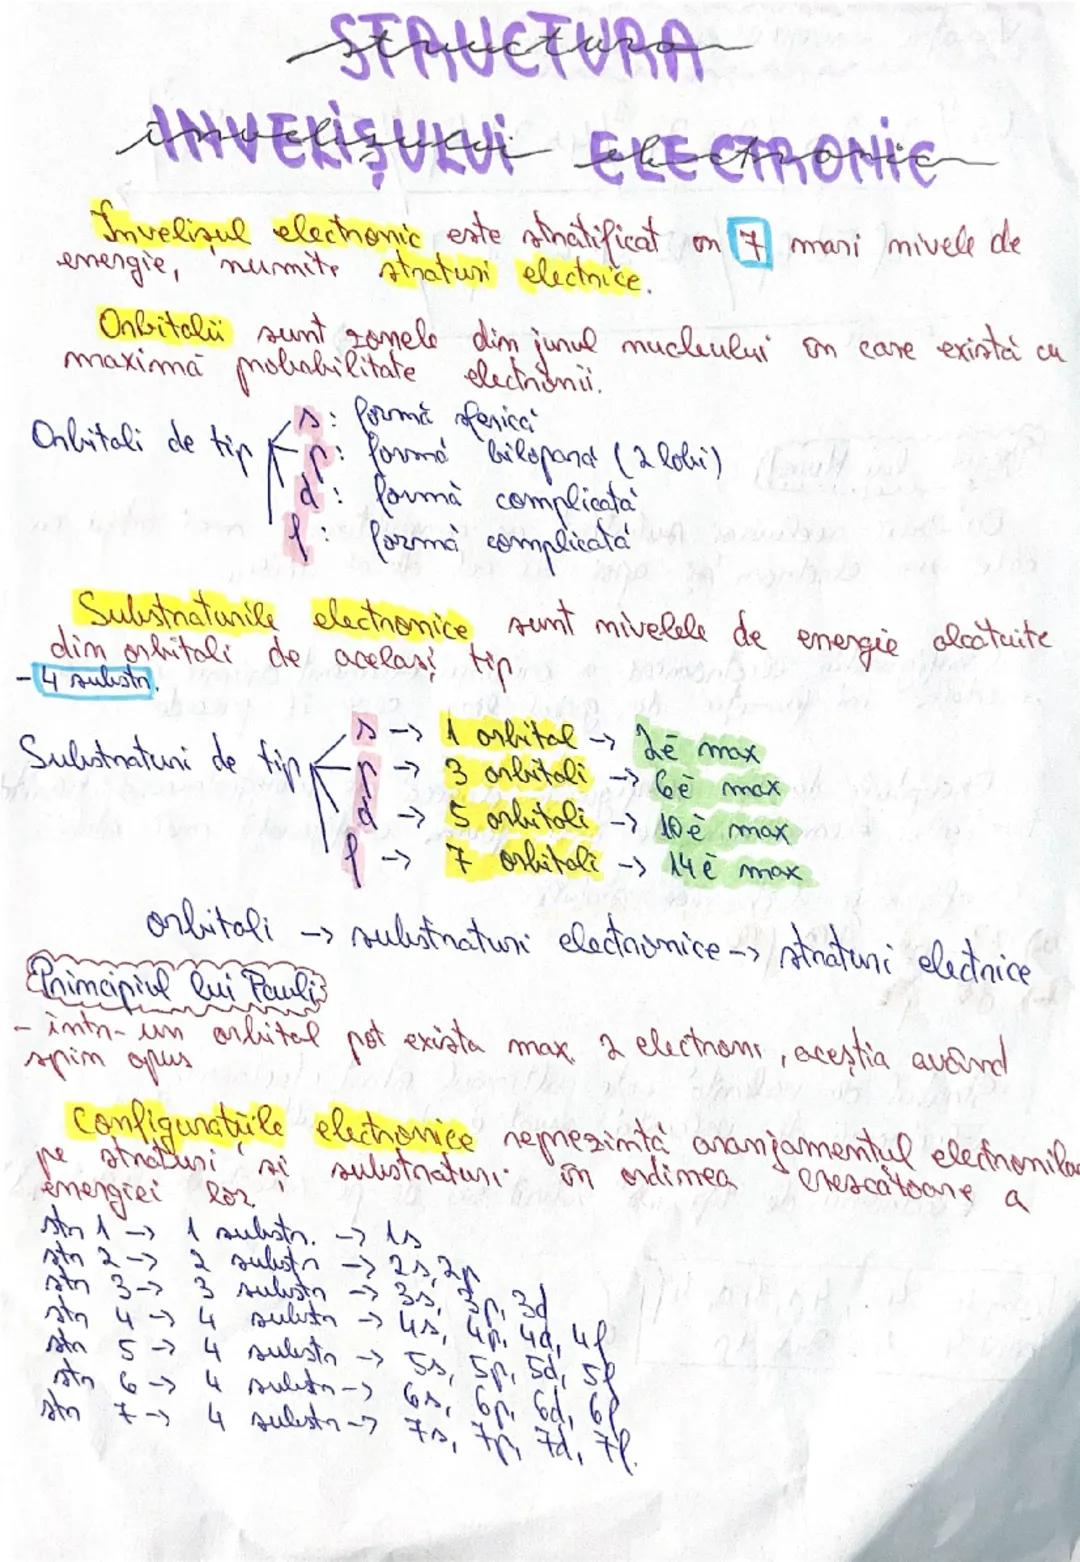 STRUCTURA
structura
INVELIŞULUI ELECTRONIC
invelişului electronic
Învelişul electronic este stratificat în 7 mari nivele de
energie, numite straturi electrice.
Orbitalii sunt zonele din jurul nucleului în care există cu
maximă probabilitate electronii.
Orbitali de tip
s: formă sferică
p: formă bilopară (2 lobi)
d: formă complicată
f: formă complicată
Substraturile electronice sunt nivelele de energie alcătuite
din orbitali de același tip
- 4 substr.
Substraturi de tip
s -> 1 orbital -> 2ē max
p -> 3 orbitali -> 6ē max
d -> 5 orbitali -> 10ē max
f -> 7 orbitali -> 14ē max
orbitali -> substraturi electronice -> straturi electrice
Principiul lui Pauli
- într-un orbital pot exista max. 2 electroni, aceștia având
spin opus
Configurațiile electronice reprezintă aranjamentul electronilor
pe straturi și substraturi în ordinea crescătoare a
energiei lor
str 1 -> 1 substr. -> 1s
str 2 -> 2 substr -> 2s, 2p
str 3 -> 3 substr -> 3s, 3p, 3d
str 4 -> 4 substr -> 4s, 4p, 4d, 4f
str 5 -> 4 substr -> 5s, 5p, 5d, 5f
str 6 -> 4 substr -> 6s, 6p, 6d, 6f
str 7 -> 4 substr -> 7s, 7p, 7d, 7f.